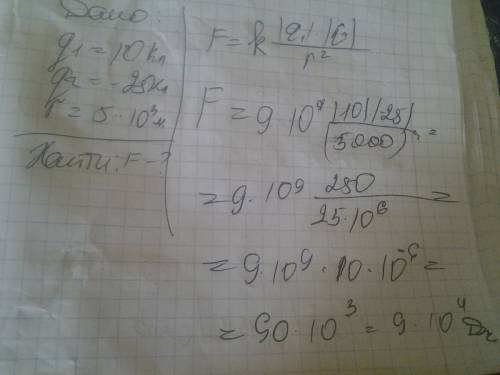 Дано:
q1 = 10 Кл
q2 = -25 Кл
r = 5 · 10³ м
Найти: F - ?
F = k |q1| |q2| / r²
F = 9 · 10⁹ |10| |-25| / (5000)² =
= 9 · 10⁹ 250 / 25 · 10⁶ =
= 9 · 10⁹ · 10 · 10⁻⁶ =
= 90 · 10³ = 9 · 10⁴